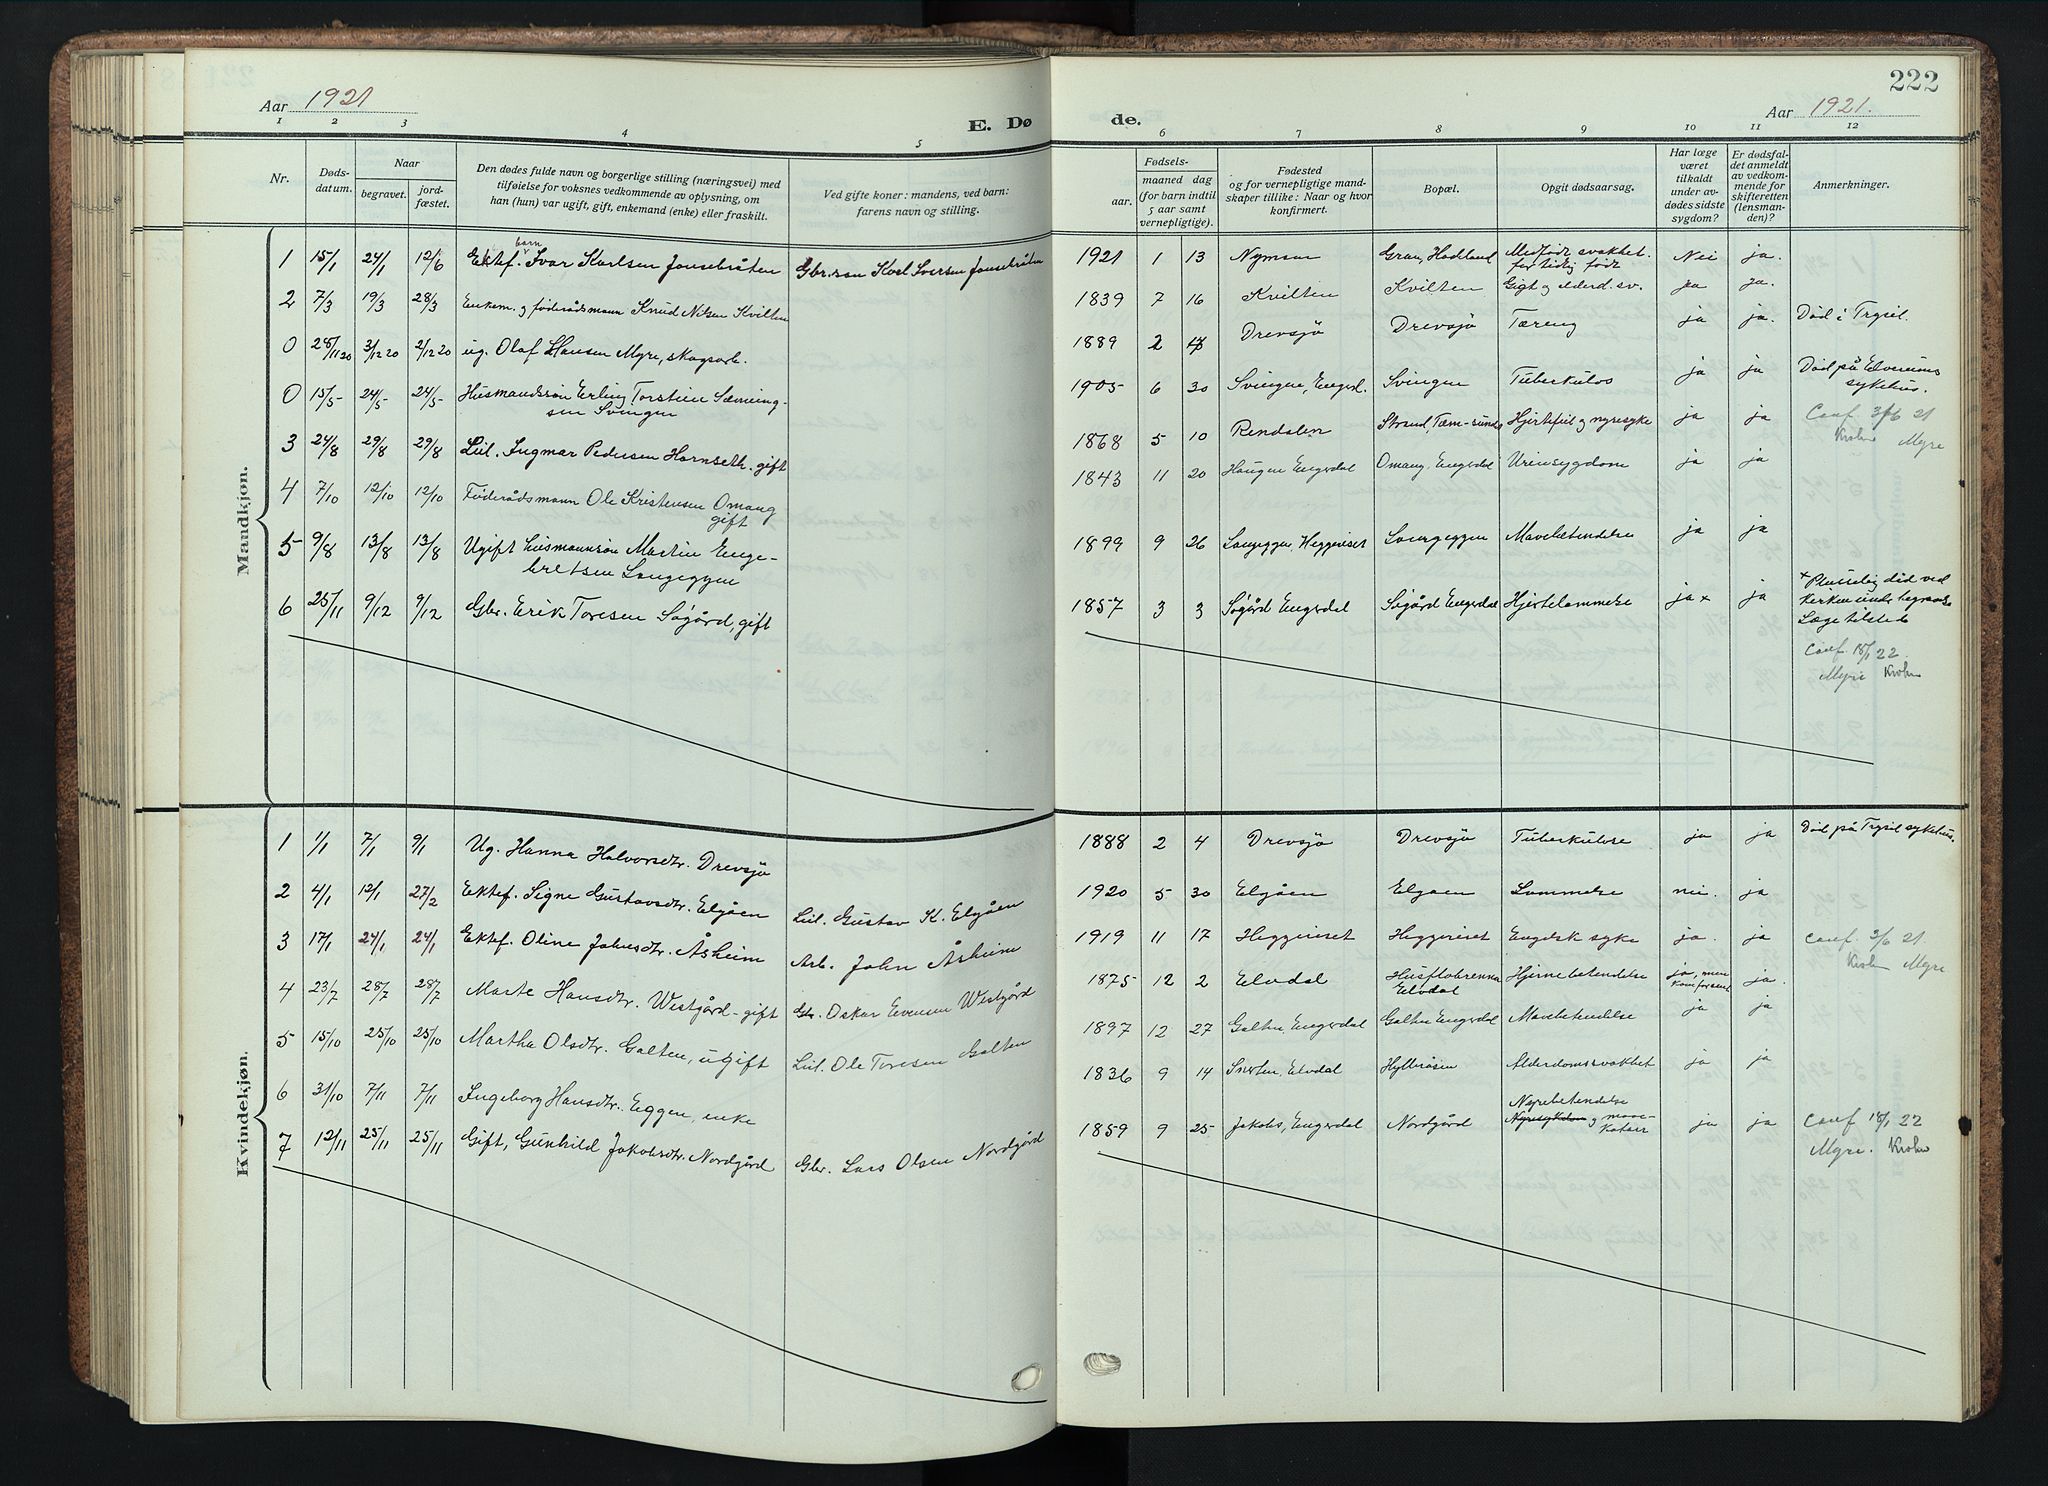 222
Aar 1921
E. Dø
de.
Aar 1921.
1 2 3 4 5 6 7 8 9 10 11 12
Nr.
Døds-
datum.
Naar
begravet.
jord-
fæstet.
Den dødes fulde navn og borgerlige stilling (næringsvei) med
tilføielse for voksnes vedkommende av oplysning, om
han (hun) var ugift, gift, enkemand (enke) eller fraskilt.
Ved gifte koner: mandens, ved barn:
farens navn og stilling.
Fødsels-
aar.
maaned dag
(for barn indtil
5 aar samt
vernepligtige).
Fødested
og for vernepligtige mand-
skaper tillike: Naar og hvor
konfirmert.
Bopæl.
Opgit dødsaarsag.
Har læge
været
tilkaldt
under av-
dødes sidste
sygdom?
Er dødsfal-
det anmeldt
av vedkom-
mende for
skifteretten
(lensman-
den)?
Anmerkninger.
Mandkjøn.
1 15/1 24/1 12/6 Ektef. barn Ivar Karlsen Jonsebråten Gbr.søn Karl Iversen Jonsebråten 1921 1 13 Nymoen Gran, Hadland Medfødt svakhet. Nei ja.
for tidlig født
2 7/3 19/3 28/3 Enkem. og føderådsmann Knud Nilsen Kvilten 1839 7 16 Kvilten Kvilten Gigt og alderd.sv. ja ja.
0 28/11 20 3/12 20 2/12 20 ug. Olaf Hansen Myre, skogsarb. 1889 2 17 Drevsjö Drevsjö Tæring ja ja. Död i Trysil.
0 15/5 24/5 24/5 Husmandssön Erling Torstein Sæming-
sen Svingen 1905 6 30 Svingen, Engerd. Svingen Tuberkulos ja ja Död på Elverums
sykehus.
3 24/8 29/8 29/8 Leil. Ingmar Pedersen Hornseth. gift 1868 5 10 Rendalen Strand, Tæm-sundet Hjertefeil og nyresyke ja ja Conf. 3/6 21
Krohn Myre
4 7/10 12/10 12/10 Föderådsmann Ole Kristensen Omang
gift 1843 11 20 Haugen Engerdal Omang, Engerdal Urinsygdom ja ja
5 9/8 13/8 13/8 Ugift husmannsön Martin Enge-
bretsen Langeggen 1899 9 26 Langeggen, Heggeriset Langeggen Mavebetendelse ja ja
6 25/11 9/12 9/12 Gbr. Erik Toresen Sögård, gift 1857 3 3 Sögård Engerdal Sögård Engerdal Hjertelammelse ja x ja x Plusselig död ved
kirken under begravelse
Læge tilstede
Conf. 18/1 22.
Myre Krohn
Kvindekjøn.
1 1/1 7/1 9/1 Ug. Hanna Halvorsdtr. Drevsjö 1888 2 4 Drevsjö Drevsjö Tuberkulose ja ja Död på Trysil sykehus.
2 4/1 12/1 27/2 Ektef. Signe Gustavsdtr. Elgåen Leil. Gustav K. Elgåen 1920 5 30 Elgåen Elgaen Lammelse nei. ja
3 17/1 24/1 24/1 Ektef. Oline Johnsdtr. Åsheim Arb. John Åsheim 1919 11 17 Heggeriset Heggeriset Engelsk syke ja. ja Conf. 3/6 21.
Krohn Myre
4 23/7 28/7 28/7 Marte Hansdtr. Westgård - gift Gbr. Oskar Evensen Westgård 1875 12 2 Elvdal Husflobrenna
Elvdal Hjernebetendelse ja, men
kom for sent ja.
5 15/10 25/10 25/10 Martha Olsdtr. Galten, ugift Leil. Ole Toresen Galten 1897 12 27 Galten, Engerdal Galten Engerdal Mavebetendelse ja ja
6 31/10 7/11 7/11 Ingeborg Hansdtr. Eggen, enke 1836 9 14 Snerten, Elvdal Hylbråsen Alderdomssvakhet ja ja
7 12/11 25/11 25/11 Gift, Gunhild Jakobsdtr. Nordgård Gbr. Lars Olsen Nordgård 1859 9 25 Jakobs, Engerdal Nordgård Nyrebetendelse
Nyresykdom og mave-
katarr ja ja Conf 18/1 22
Myre. Krohn